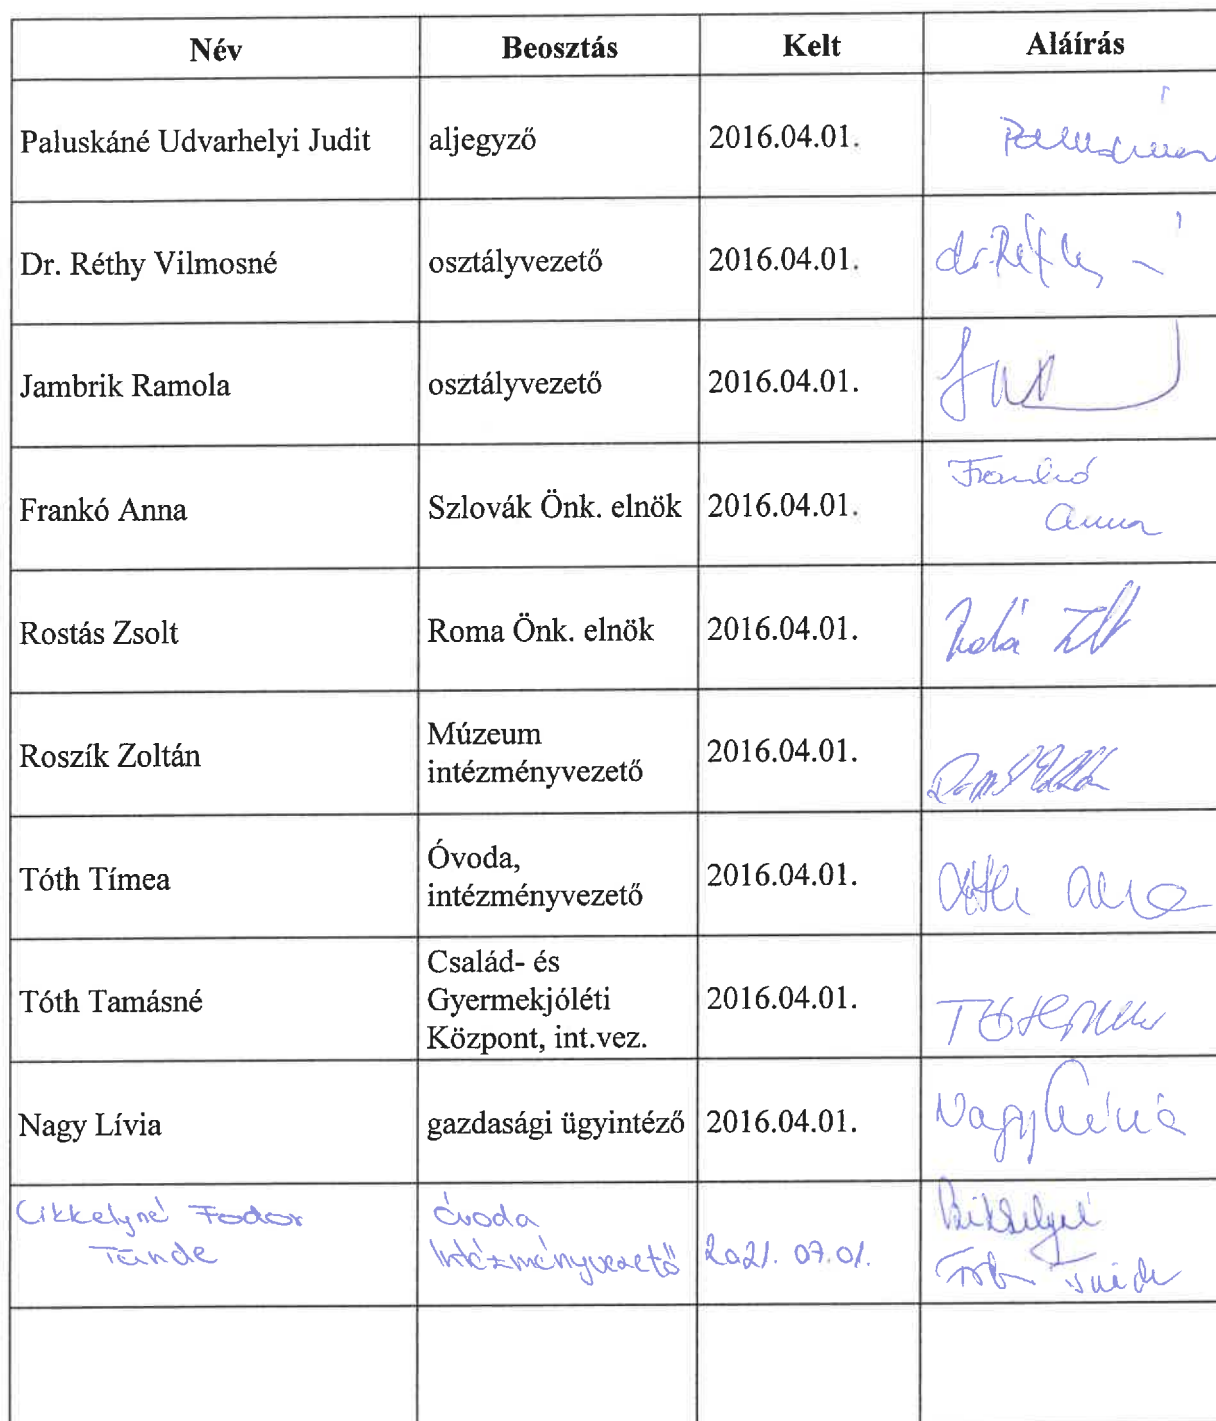 Név Beosztás Kelt Aláírás
Paluskáné Udvarhelyi Judit aljegyző 2016.04.01.
Dr. Réthy Vilmosné osztályvezető 2016.04.01.
Jambrik Ramola osztályvezető 2016.04.01.
Frankó Anna Szlovák Önk. elnök 2016.04.01. Frankó
Anna
Rostás Zsolt Roma Önk. elnök 2016.04.01.
Roszík Zoltán Múzeum
intézményvezető 2016.04.01.
Tóth Tímea Óvoda,
intézményvezető 2016.04.01.
Tóth Tamásné Család- és
Gyermekjóléti
Központ, int.vez. 2016.04.01.
Nagy Lívia gazdasági ügyintéző 2016.04.01. Nagy Lívia
Cikkelyné Fodor
Tünde óvoda
intézményvezető 2021. 07.01.